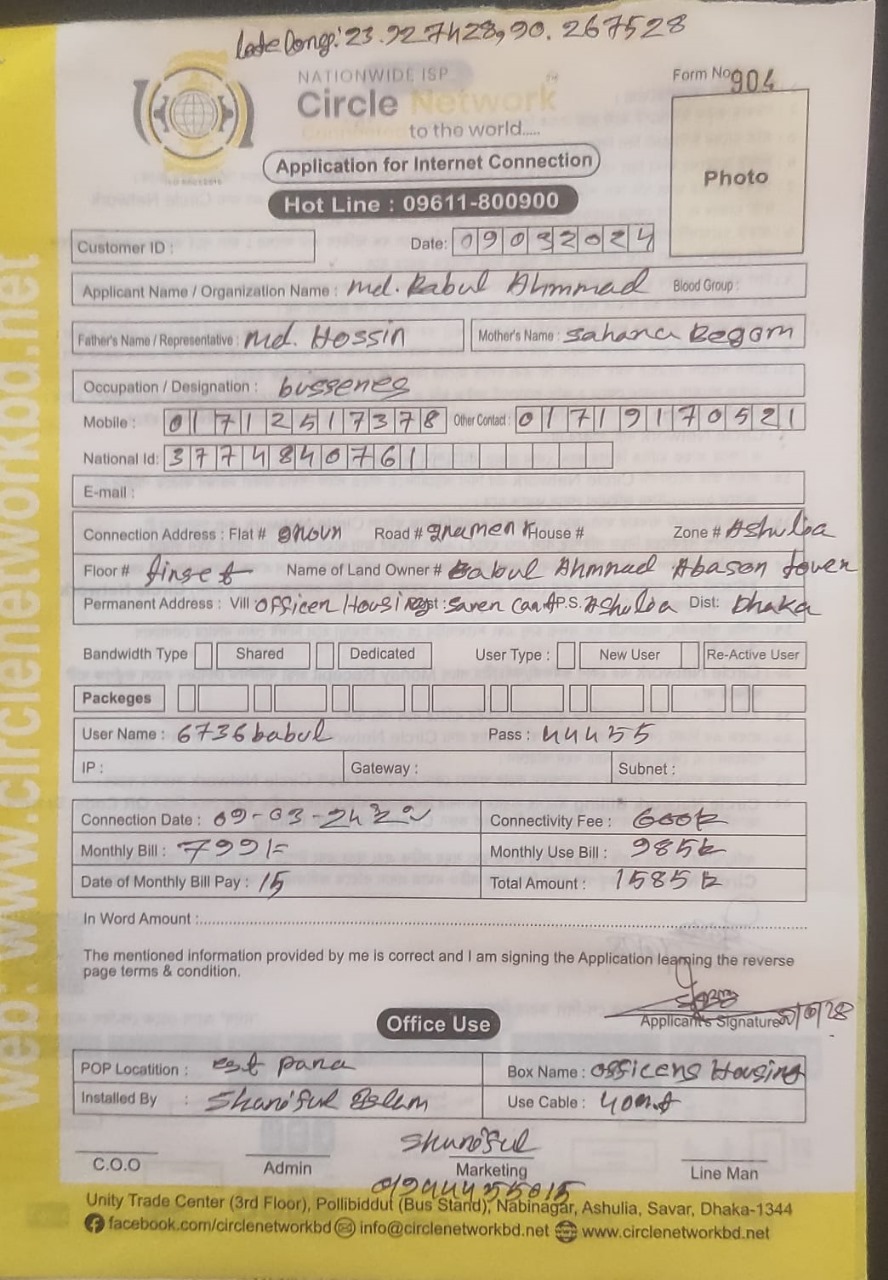 23.927428,90.267528
NATIONWIDE ISP
Circle Network
to the world.....
Form No 904
Photo
Application for Internet Connection
Hot Line : 09611-800900
Customer ID :
Date: 09032024
Applicant Name / Organization Name : md. Babul Ahmmad Blood Group :
Father's Name / Representative : md. Hossin Mother's Name : Sahana Begom
Occupation / Designation : bussenes
Mobile : 01712517378 Other Contact : 01719170521
National Id: 3774840761
E-mail :
Connection Address : Flat # Road # House # Zone # Ashulia
Floor # Name of Land Owner # Babul Ahmmad Abason
Permanent Address : Vill Officer Housi Post : Saver Cant P.S. Ashulia Dist: Dhaka
Bandwidth Type Shared Dedicated User Type : New User Re-Active User
Packeges
User Name : 6736babul Pass : 44455
IP : Gateway : Subnet :
Connection Date : 09-03-24 Connectivity Fee :
Monthly Bill : 799/= Monthly Use Bill : 985
Date of Monthly Bill Pay : 15 Total Amount : 1585
In Word Amount :
The mentioned information provided by me is correct and I am signing the Application learning the reverse
page terms & condition.
Applicant's Signature
Office Use
POP Locatition : est para Box Name : officers Housing
Installed By : Shariful Use Cable :
Shariful
C.O.O Admin Marketing Line Man
Unity Trade Center (3rd Floor), Pollibiddut (Bus Stand), Nabinagar, Ashulia, Savar, Dhaka-1344
facebook.com/circlenetworkbd info@circlenetworkbd.net www.circlenetworkbd.net
web : www.circlenetworkbd.net